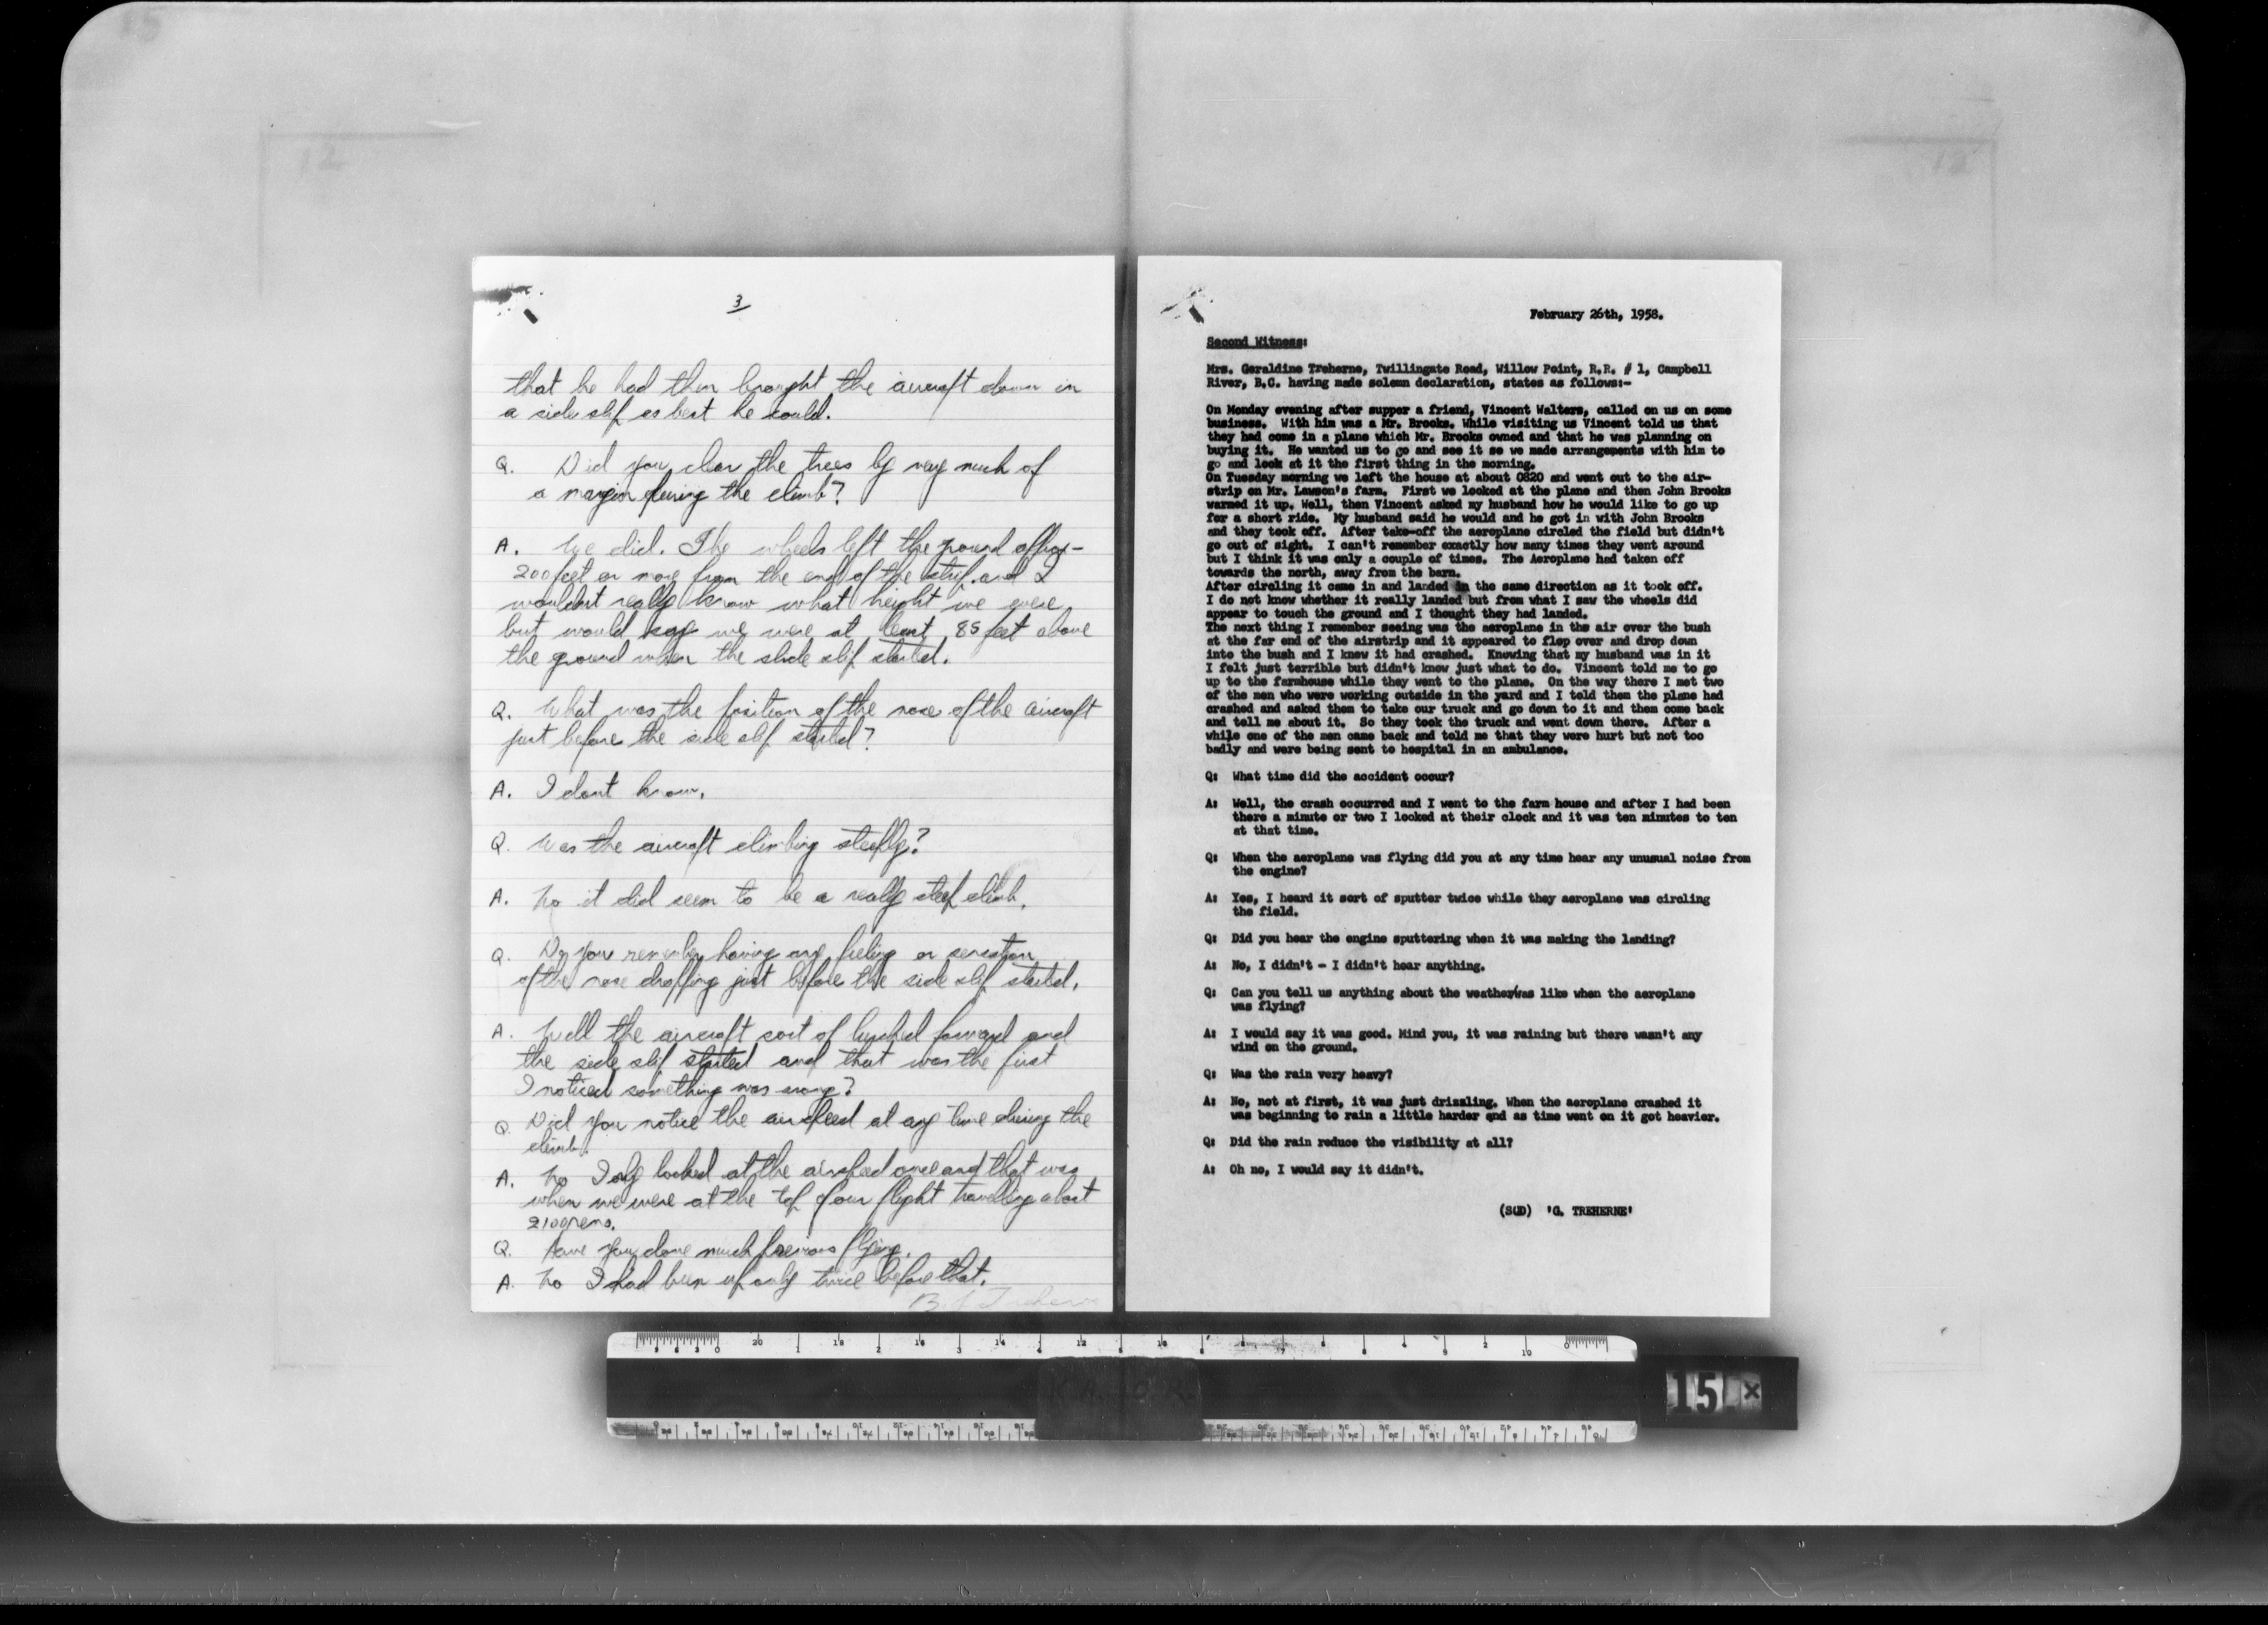 3
that he had then brought the aircraft down in
a side slip as best he could.
Q. Did you clear the trees by very much of
a margin during the climb?
A. We did. The wheels left the ground approx-
200 feet or more from the end of the strip and I
wouldnt really know what height we were
but would say we were at least 85 feet above
the ground when the side slip started.
Q. What was the position of the nose of the aircraft
just before the side slip started?
A. I dont know.
Q. Was the aircraft climbing steeply?
A. No it did seem to be a really steep climb.
Q. Do you remember having any feeling or sensation
of the nose dropping just before the side slip started.
A. Well the aircraft sort of lurched forward and
the side slip started and that was the first
I noticed something was wrong?
Q. Did you notice the airspeed at any time during the
climb.
A. No I only looked at the airspeed once and that was
when we were at the top of our flight travelling about
2100 rems.
Q. Have you done much previous flying.
A. No I had been up only twice before that.
February 26th, 1958.
Second Witness:
Mrs. Geraldine Treherne, Twillingate Road, Willow Point, R.R. # 1, Campbell
River, B.C. having made solemn declaration, states as follows:-
On Monday evening after supper a friend, Vincent Walters, called on us on some
business. With him was a Mr. Brooks. While visiting us Vincent told us that
they had come in a plane which Mr. Brooks owned and that he was planning on
buying it. He wanted us to go and see it so we made arrangements with him to
go and look at it the first thing in the morning.
On Tuesday morning we left the house at about 0820 and went out to the air-
strip on Mr. Lawson's farm. First we looked at the plane and then John Brooks
warmed it up. Well, then Vincent asked my husband how he would like to go up
for a short ride. My husband said he would and he got in with John Brooks
and they took off. After take-off the aeroplane circled the field but didn't
go out of sight. I can't remember exactly how many times they went around
but I think it was only a couple of times. The Aeroplane had taken off
towards the north, away from the barn.
After circling it came in and landed in the same direction as it took off.
I do not know whether it really landed but from what I saw the wheels did
appear to touch the ground and I thought they had landed.
The next thing I remember seeing was the aeroplane in the air over the bush
at the far end of the airstrip and it appeared to flop over and drop down
into the bush and I knew it had crashed. Knowing that my husband was in it
I felt just terrible but didn't know just what to do. Vincent told me to go
up to the farmhouse while they went to the plane. On the way there I met two
of the men who were working outside in the yard and I told them the plane had
crashed and asked them to take our truck and go down to it and them come back
and tell me about it. So they took the truck and went down there. After a
while one of the men came back and told me that they were hurt but not too
badly and were being sent to hospital in an ambulance.
Q: What time did the accident occur?
A: Well, the crash occurred and I went to the farm house and after I had been
there a minute or two I looked at their clock and it was ten minutes to ten
at that time.
Q: When the aeroplane was flying did you at any time hear any unusual noise from
the engine?
A: Yes, I heard it sort of sputter twice while they aeroplane was circling
the field.
Q: Did you hear the engine sputtering when it was making the landing?
A: No, I didn't - I didn't hear anything.
Q: Can you tell us anything about the weather/was like when the aeroplane
was flying?
A: I would say it was good. Mind you, it was raining but there wasn't any
wind on the ground.
Q: Was the rain very heavy?
A: No, not at first, it was just drizzling. When the aeroplane crashed it
was beginning to rain a little harder and as time went on it got heavier.
Q: Did the rain reduce the visibility at all?
A: Oh no, I would say it didn't.
(SGD) 'G. TREHERNE'
15 x